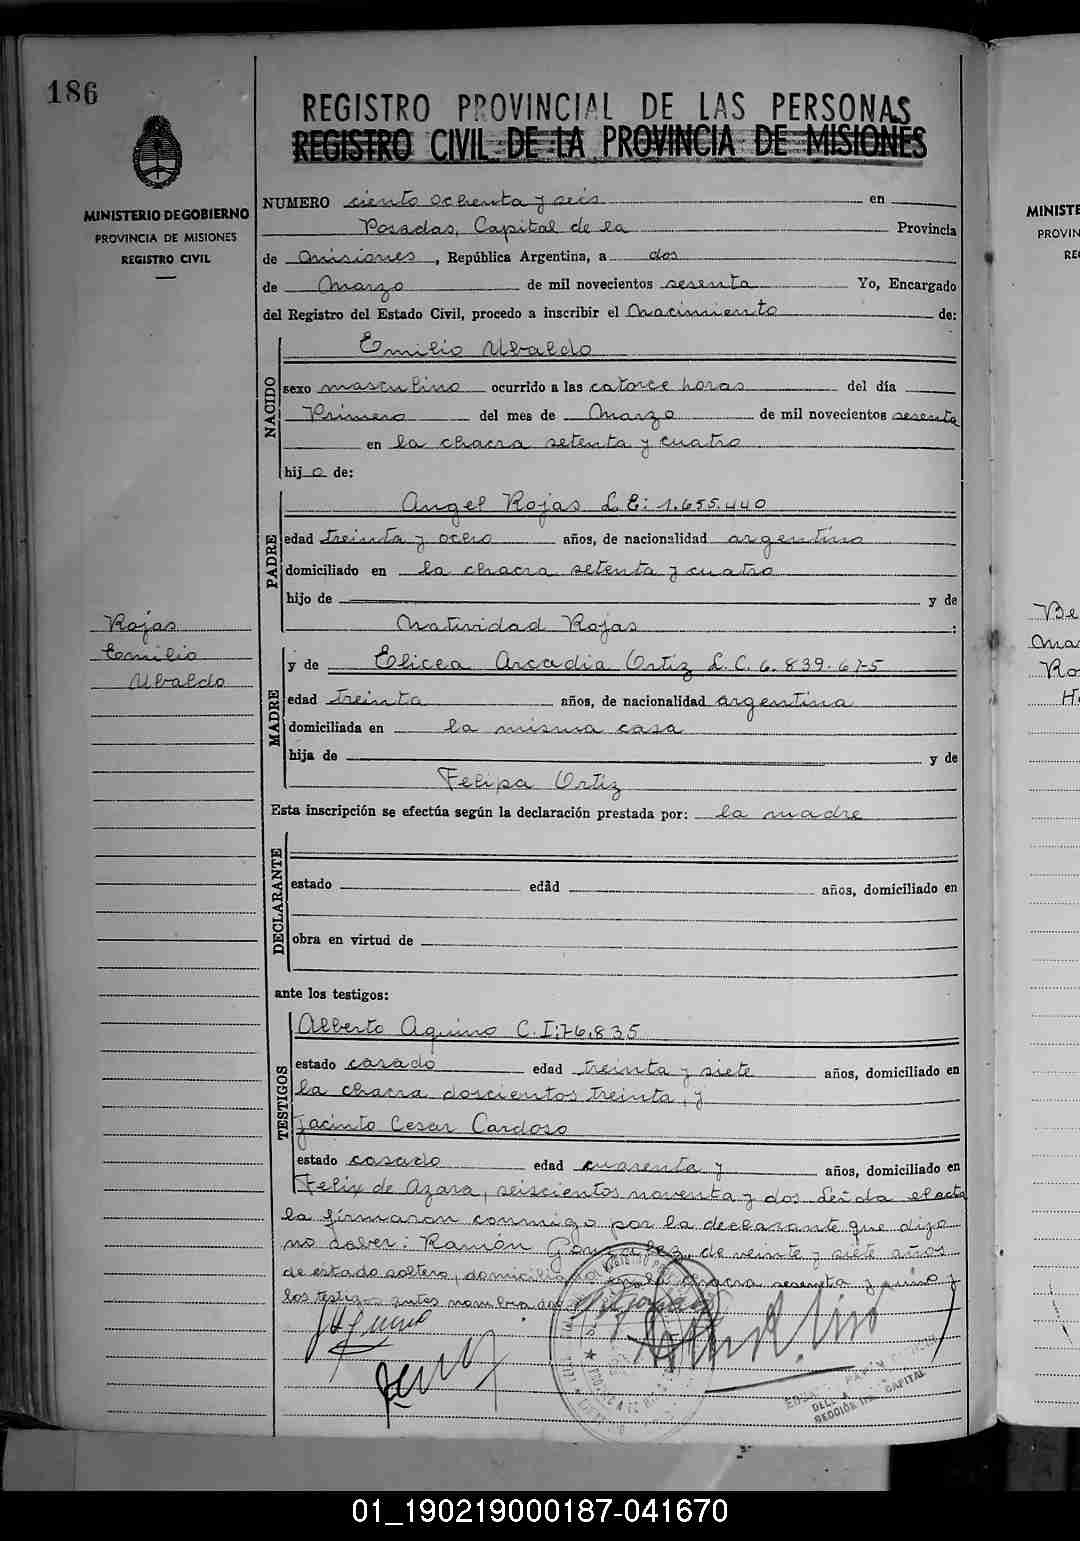 186
REGISTRO PROVINCIAL DE LAS PERSONAS
REGISTRO CIVIL DE LA PROVINCIA DE MISIONES
MINISTERIO DE GOBIERNO
PROVINCIA DE MISIONES
REGISTRO CIVIL
NUMERO ciento ochenta y seis en
Posadas, Capital de la Provincia
de Misiones, República Argentina, a dos
de Marzo de mil novecientos sesenta Yo, Encargado
del Registro del Estado Civil, procedo a inscribir el Nacimiento de:
NACIDO
Emilio Ubaldo
sexo masculino ocurrido a las catorce horas del día
Primero del mes de Marzo de mil novecientos sesenta
en la chacra setenta y cuatro
hijo de:
PADRE
Angel Rojas L.E: 1.655.440
edad treinta y ocho años, de nacionalidad argentino
domiciliado en la chacra setenta y cuatro
hijo de y de
Natividad Rojas :
Rojas
Emilio
Ubaldo
MADRE
y de Elicea Arcadia Ortiz L.C. 6.839.675
edad treinta años, de nacionalidad argentina
domiciliada en la misma casa
hija de y de
Felipa Ortiz
Esta inscripción se efectúa según la declaración prestada por: la madre
DECLARANTE
estado edad años, domiciliado en
obra en virtud de
ante los testigos:
TESTIGOS
Alberto Aquino C.I: 76.835
estado casado edad treinta y siete años, domiciliado en
la chacra doscientos treinta, y
Jacinto Cesar Cardoso
estado casado edad cuarenta y años, domiciliado en
Felix de Azara, seiscientos noventa y dos Leída el acta
la firmaron conmigo por la declarante que dijo
no saber: Ramón Gonzalez, de veinte y siete años
de estado soltero, domiciliado en la chacra sesenta y uno y
los testigos antes nombrados
SECCION CAPITAL
MINISTE
PROVIN
RE
Be
Ma
Ro
H
01_190219000187-041670